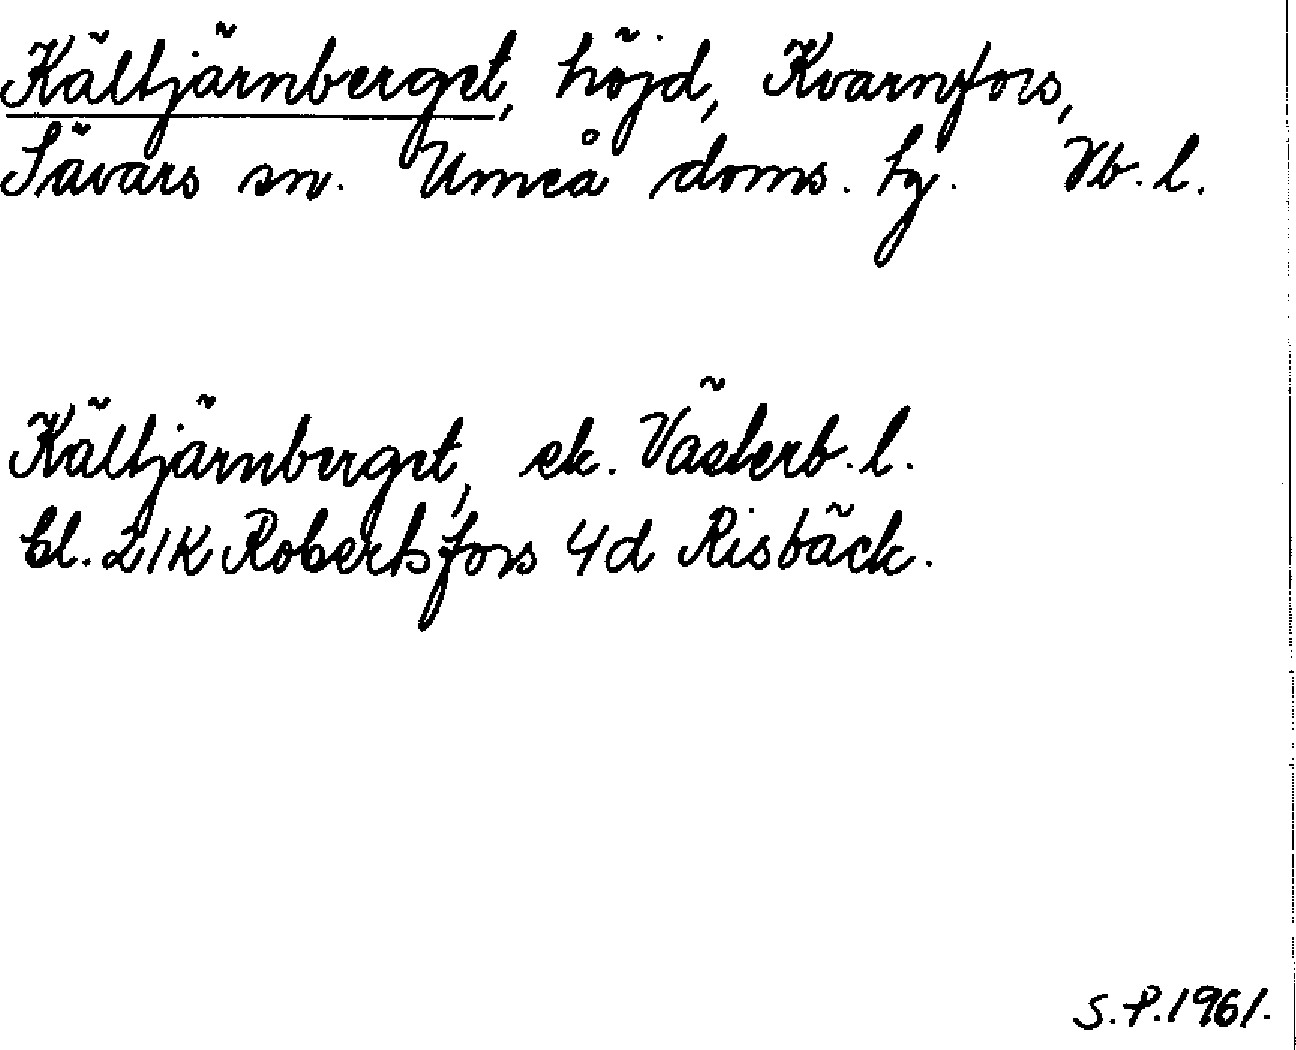 Kältjärnberget, höjd, Kvarnfors,
Sävars sn. Umeå doms. hg. Vb. l.
Kältjärnberget, ek. Västerb. l.
bl. 21K Robertsfors 4d Risbäck.
S.P. 1961.